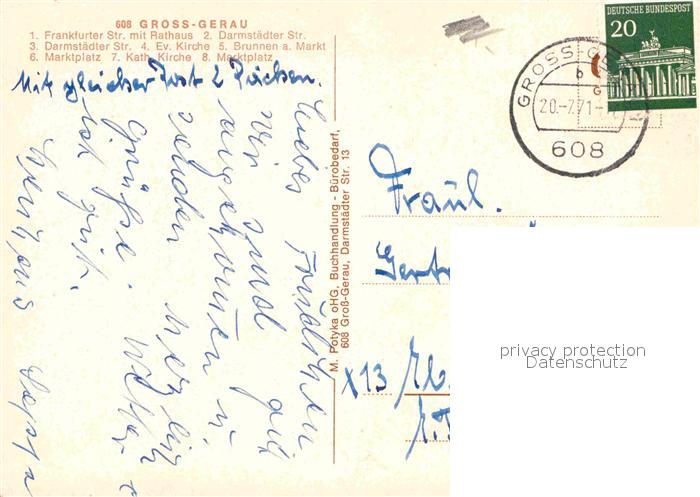 608 GROSS-GERAU
1. Frankfurter Str. mit Rathaus 2. Darmstädter Str.
3. Darmstädter Str. 4. Ev. Kirche 5. Brunnen a. Markt
6. Marktplatz 7. Kath. Kirche 8. Marktplatz
Mit gleicher Post 2 Päckchen.
Liebes
Wir sind gut
angekommen u.
senden herzlich
Grüße. Wetter
ist gut.
M. Potyka oHG, Buchhandlung - Bürobedarf,
608 Groß-Gerau, Darmstädter Str. 13
DEUTSCHE BUNDESPOST
20
GROSS-GE
b
20.-7.71-
608
Fräul.
Gertr
x13
privacy protection
Datenschutz